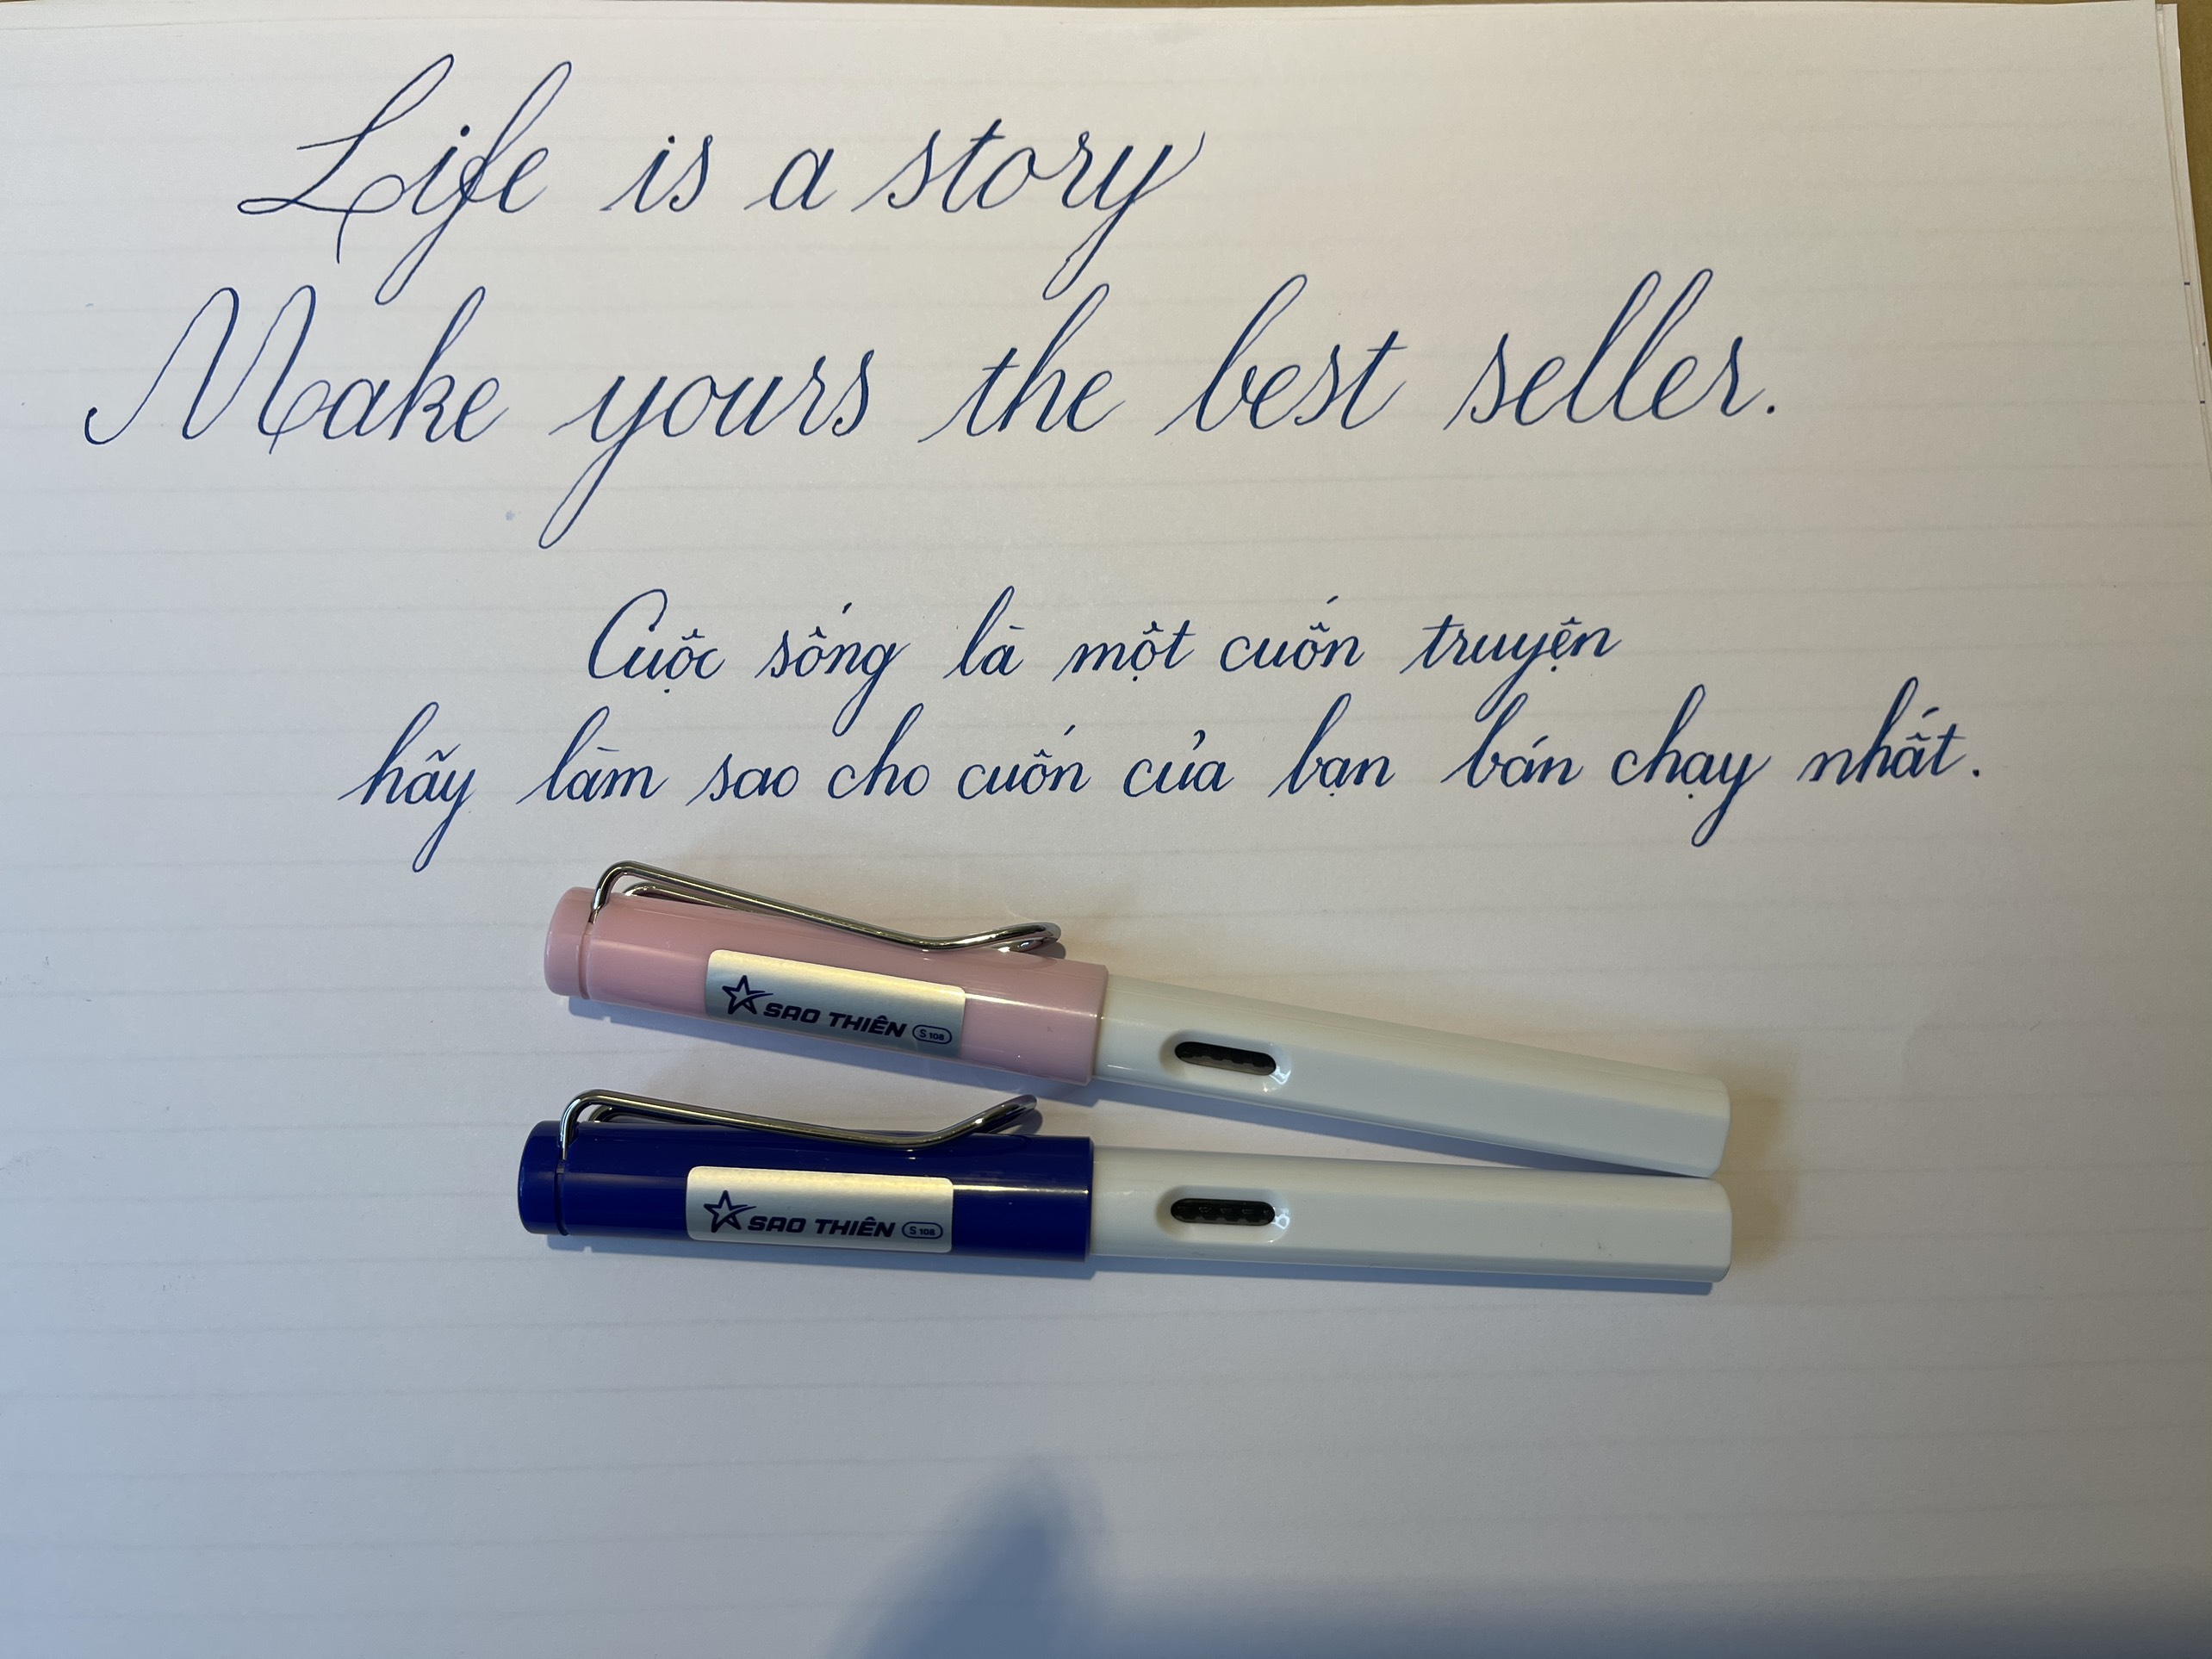 Life is a story
Make yours the best seller.
Cuộc sống là một cuốn truyện
hãy làm sao cho cuốn của bạn bán chạy nhất.
SAO THIÊN S 108
SAO THIÊN S 108